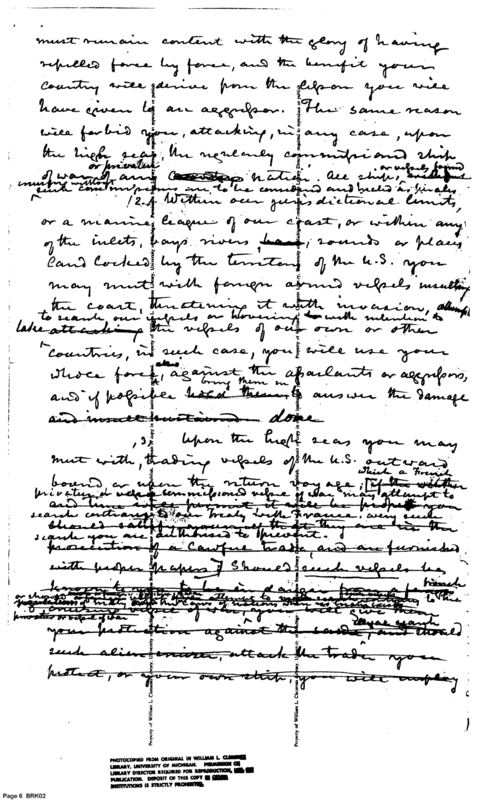 must remain content with the glory of having
repelled force by force, and the benefit your
country will derive from the lesson you will
have given to an aggressor. The same reason
will forbid you, attacking, in any case, upon
the high seas the regularly commissioned ship
or privateer or vessels found
of war of any nation. All ships,
cruising without
such commissions are to be considered and held as pirates
(2.) Within our jurisdictional limits,
or a marine league of our coast, or within any
of the inlets, bays rivers, sounds or places
land locked by the territory of the U.S. you
may meet with foreign armed vessels insulting
the coast, threatening it with invasion, attempting
to search our vessels or hovering with intention to
take attacking the vessels of our own or other
countries, in such case, you will use your
whole force, also, against the assailants or aggressors,
bring them in
and if possible to answer the damage
and insult sustained done
,3, Upon the high seas you may
meet with, trading vessels of the U.S. outward
which a French
bound or upon the return voyage,
privateer or commissioned vessel of war may attempt to
search contrary to our Treaty with France, any such
search you are authorised to prevent.
prosecution of a lawful trade, and are furnished
with proper papers] Should such vessels be
French
privateer or vessel of war
your protection against the same, and should
such attack the trader your
protect, or your own ship, you will employ
Property of William L.
Property of William L.
PHOTOCOPIED FROM ORIGINAL IN WILLIAM L.
LIBRARY, UNIVERSITY OF MICHIGAN. PERMISSION OF
LIBRARY DIRECTOR REQUIRED FOR REPRODUCTION,
PUBLICATION. DEPOSIT OF THIS COPY IN
INSTITUTIONS IS STRICTLY PROHIBITED.
Page 6 BRK02